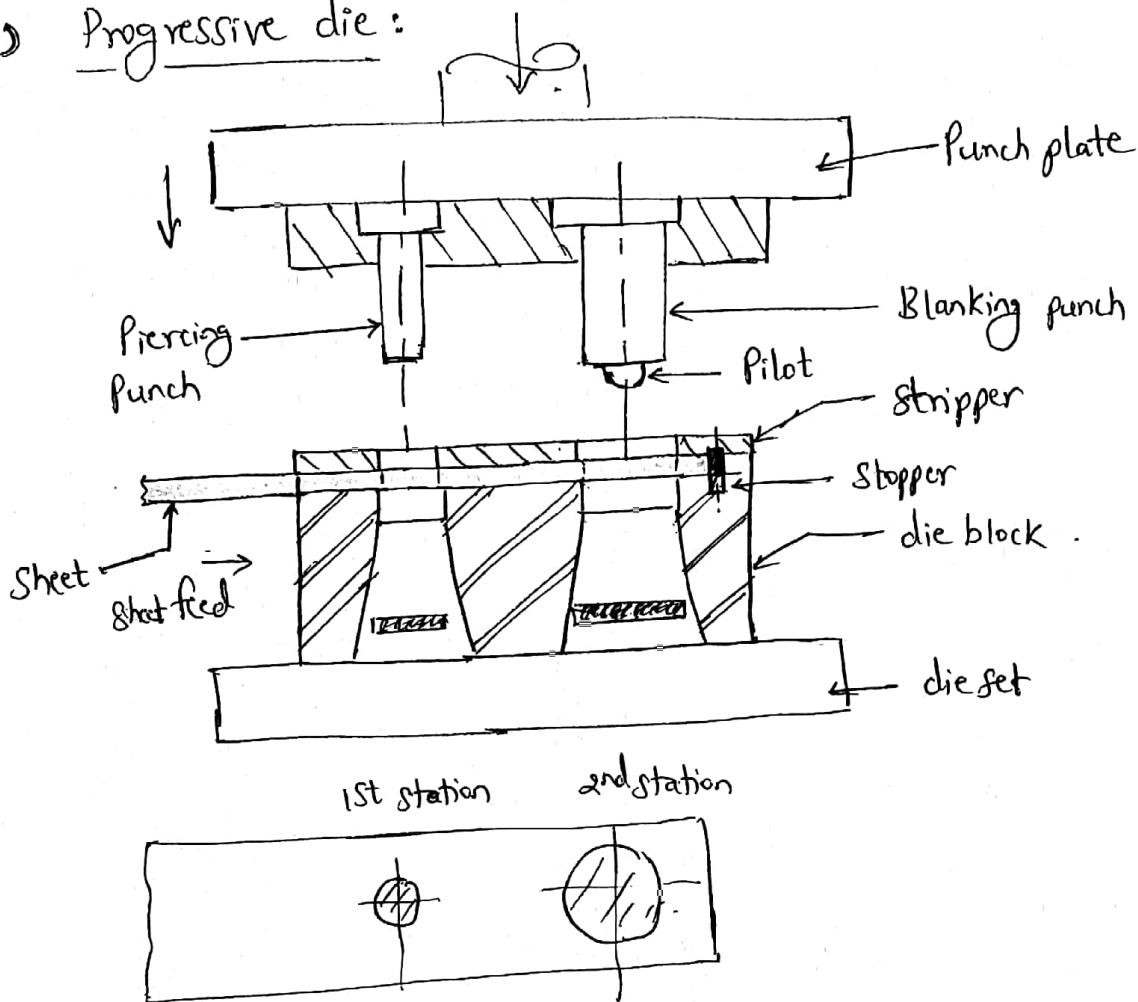 Progressive die :
Punch plate
Blanking punch
Piercing
Punch
Pilot
Stripper
Stopper
die block .
Sheet
Sheet feed
die set
1st station
2nd station